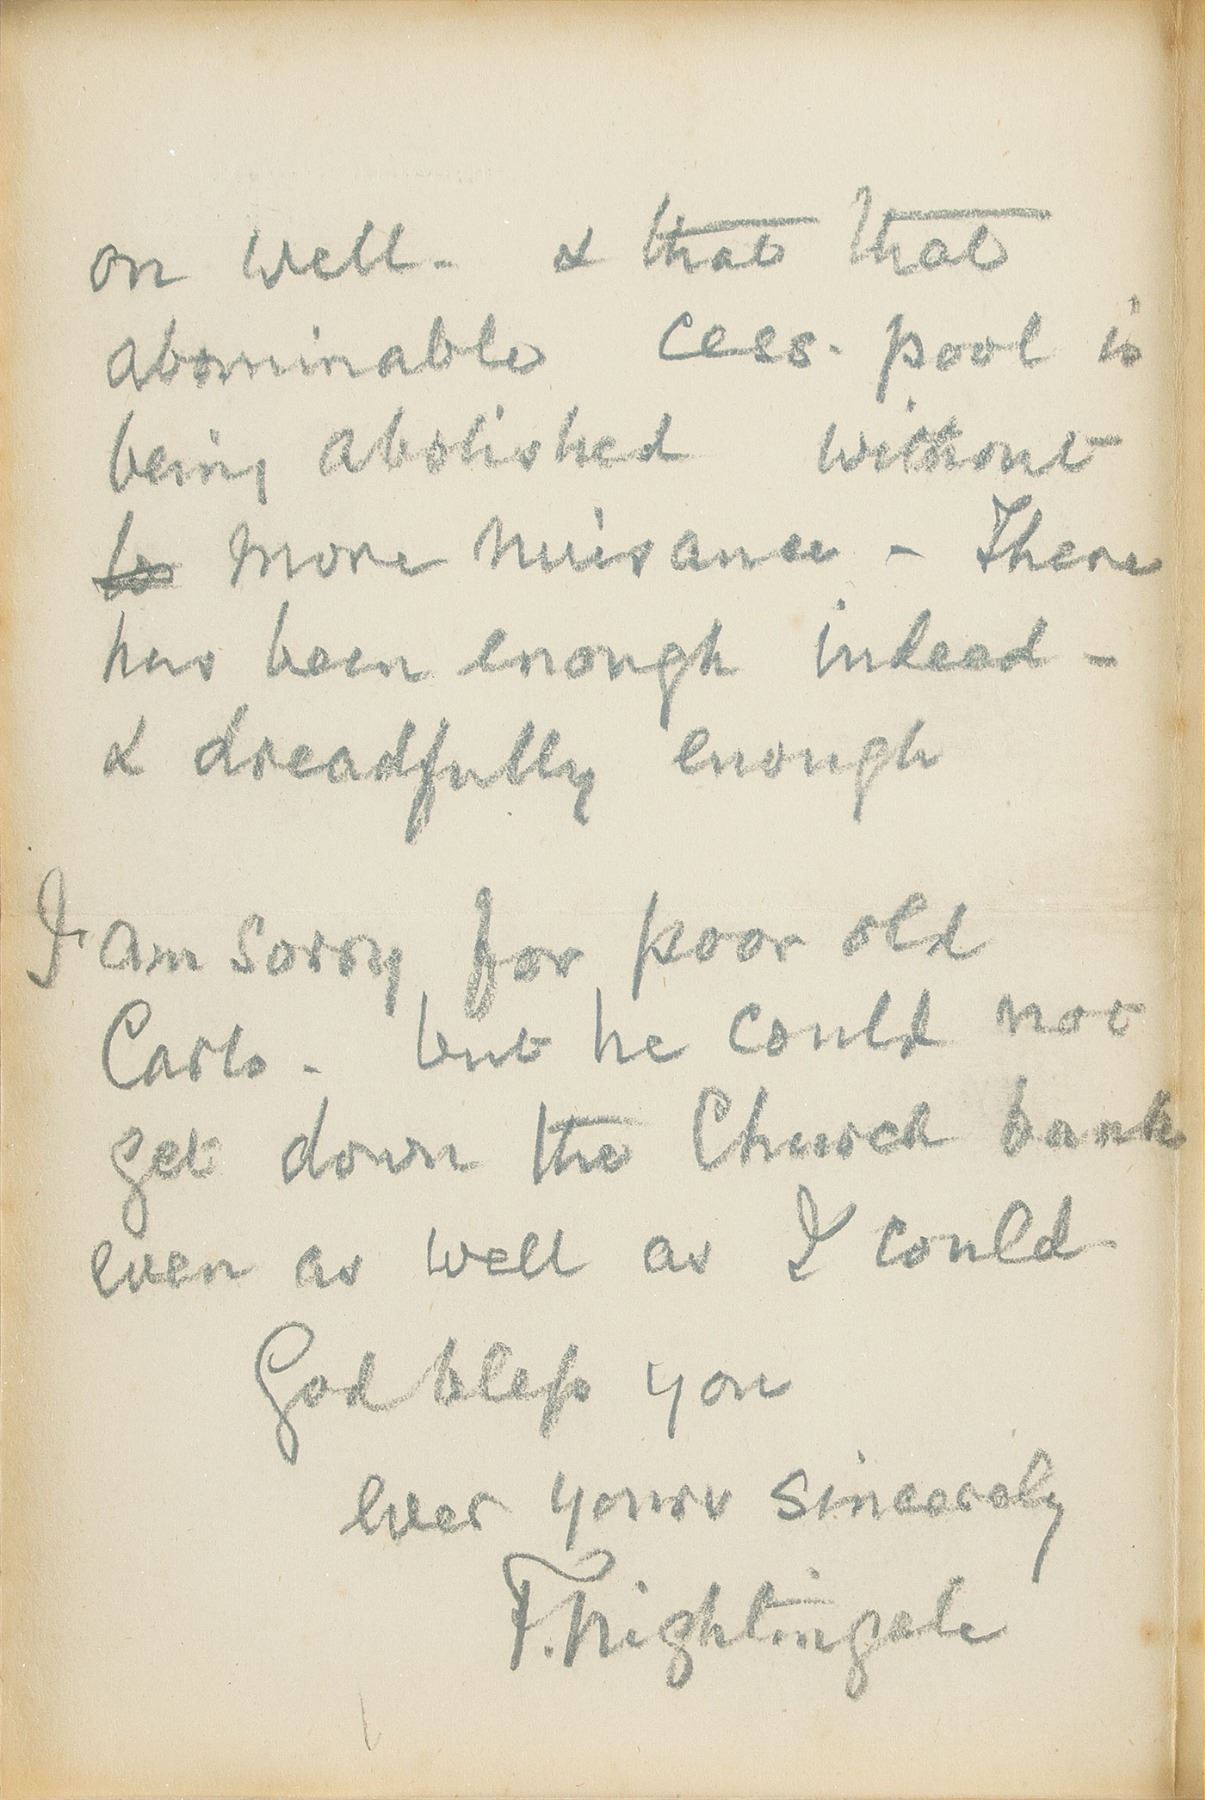 on well - & that that
abominable cess-pool is
being abolished without
to more nuisance - There
has been enough indeed -
& dreadfully enough
I am sorry for poor old
Carlo - but he could not
get down the Church bank
even as well as I could
God bless you
ever yours sincerely
F. Nightingale